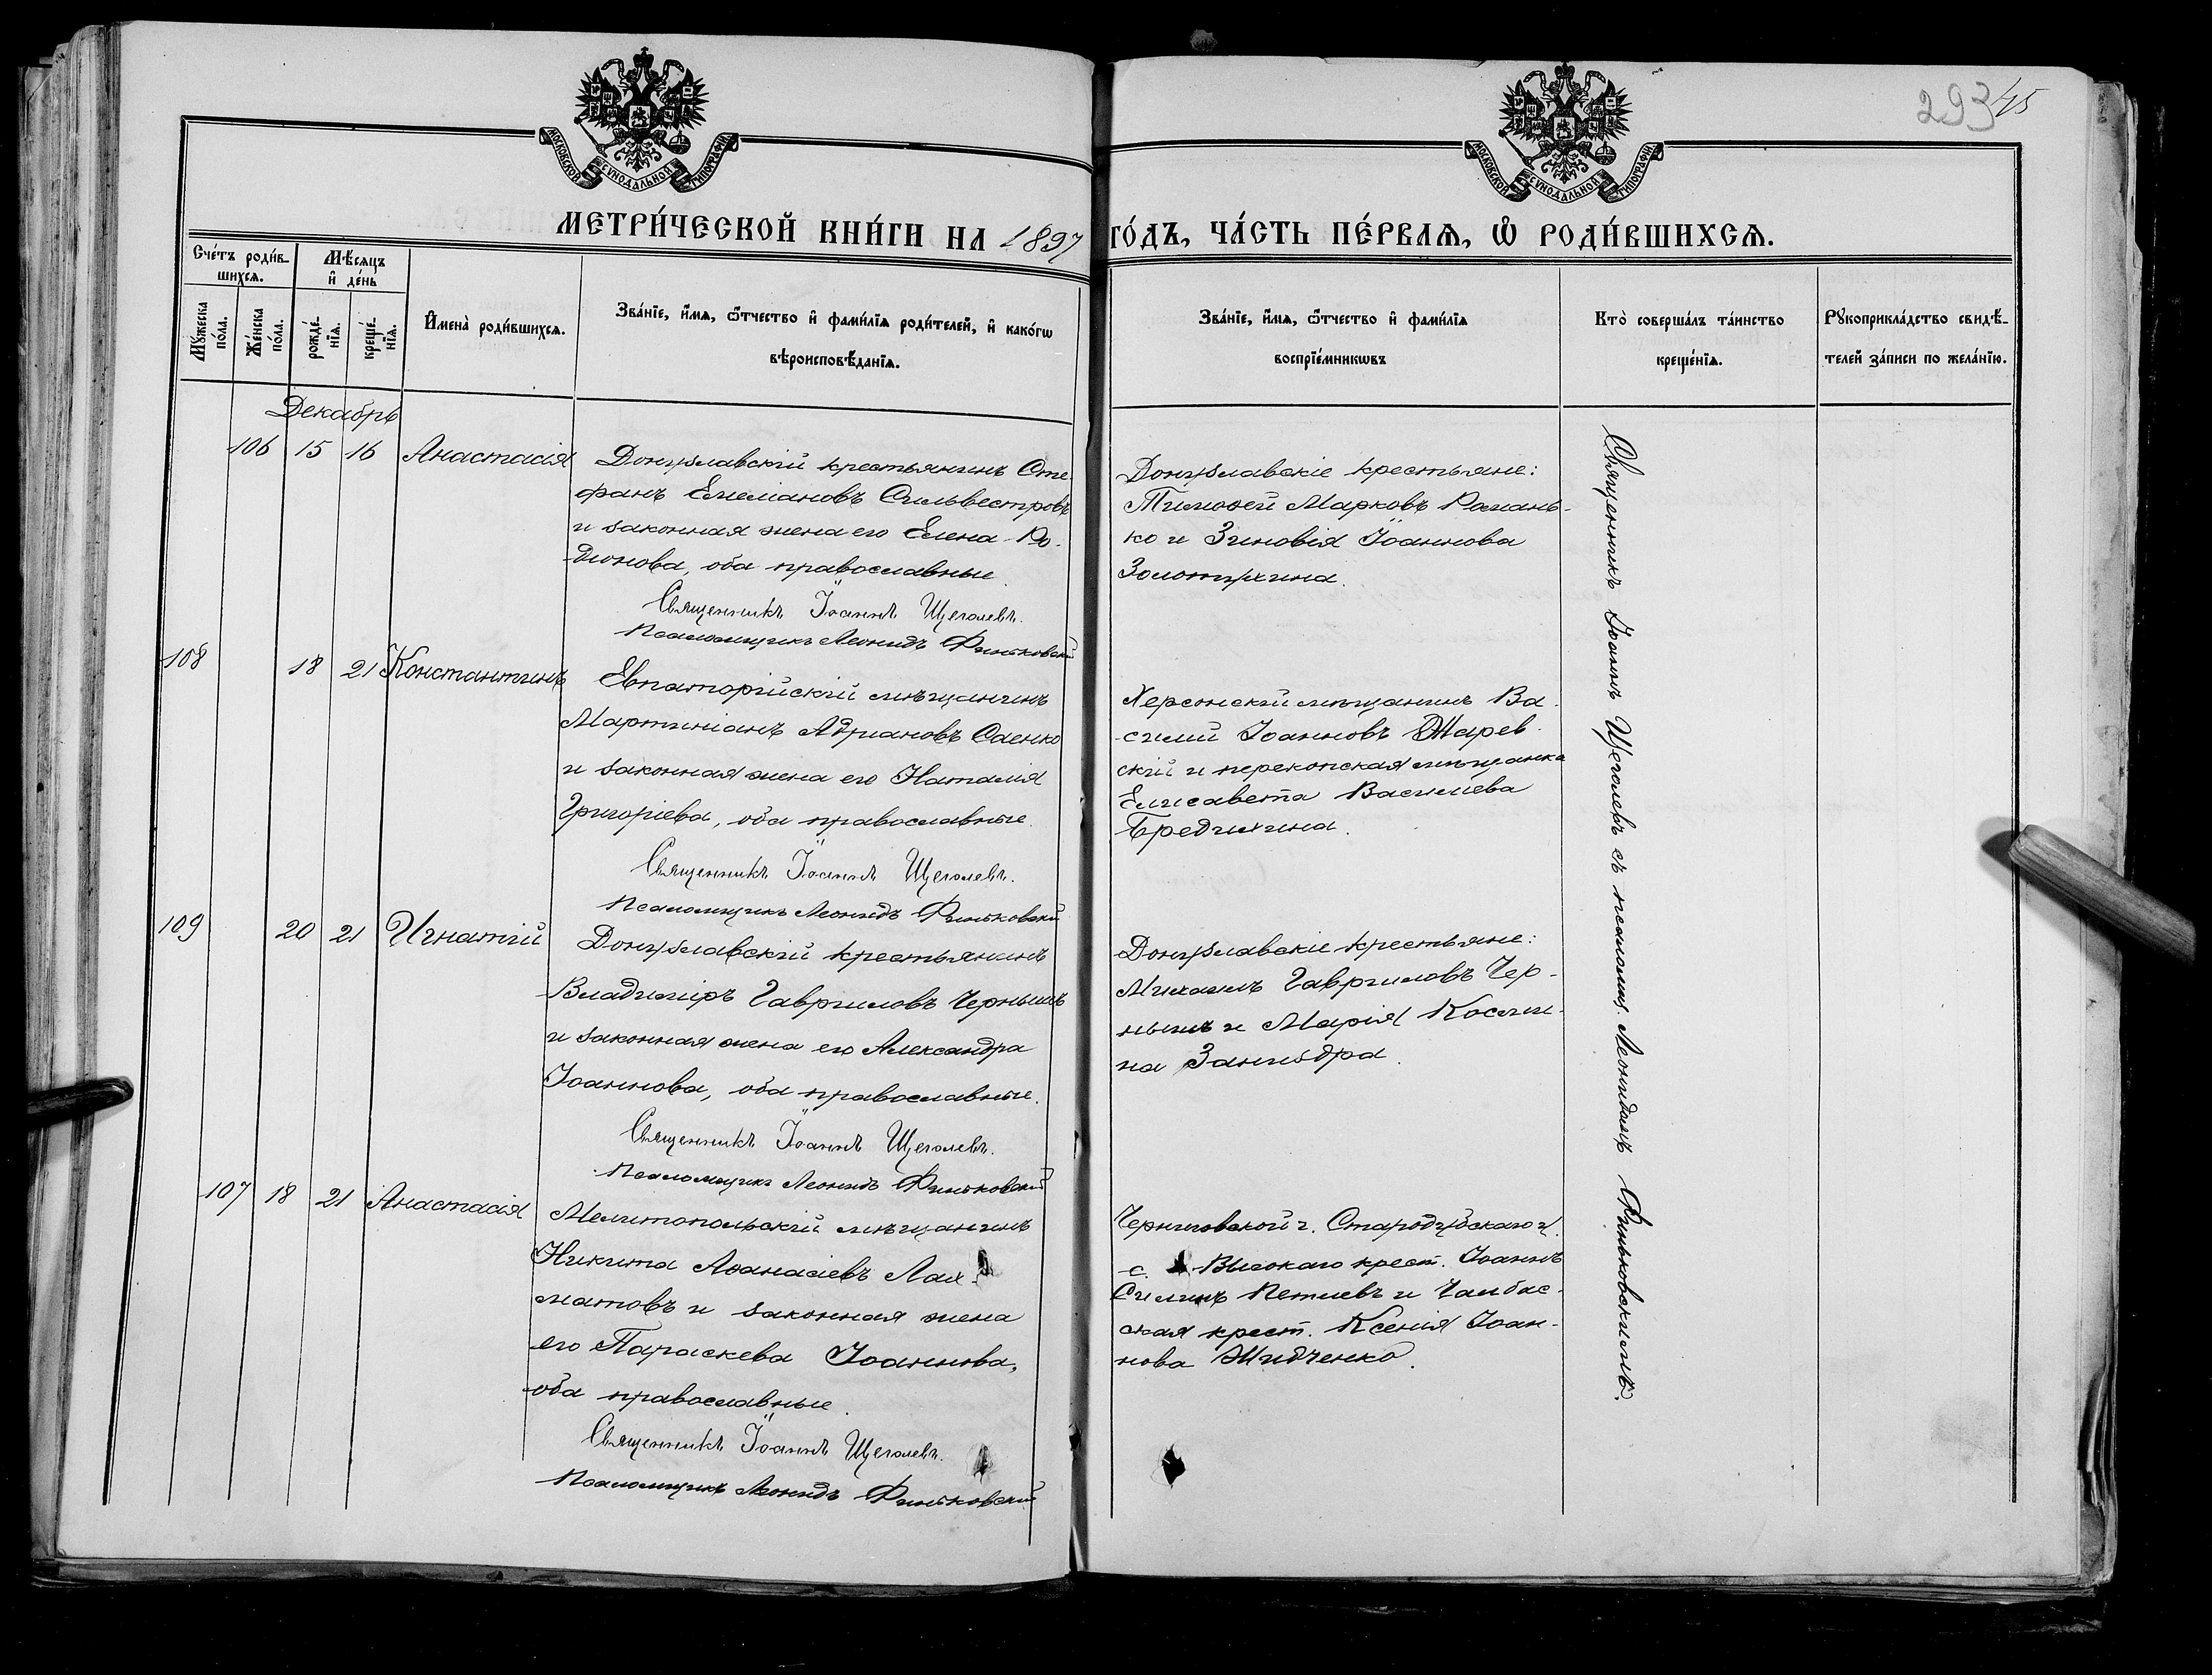 293 45
МОСКОВСКОЙ СѴНОДАЛЬНОЙ ТИПОГРАФІИ
МОСКОВСКОЙ СѴНОДАЛЬНОЙ ТИПОГРАФІИ
МЕТРИ́ЧЕСКОЙ КНИ́ГИ НА 1897 ГО́ДЪ, ЧА́СТЬ ПЕ́РВАѦ, Ѡ҆ РОДИ́ВШИХСѦ.
Сче́тъ роди́в-
шихсѧ.
Мѣ́сѧцъ
и҆ де́нь
Мꙋ́жеска
по́ла.
Же́нска
по́ла.
рожде́-
нїѧ.
креще́-
нїѧ.
И҆мена̀ роди́вшихсѧ.
Зва́нїе, и҆́мѧ, ѻ҆́тчество и҆ фами́лїѧ роди́телей, и҆ како́гѡ
вѣроисповѣ́данїѧ.
Зва́нїе, и҆́мѧ, ѻ҆́тчество и҆ фами́лїѧ
воспрїе́мникѡвъ
Кто̀ соверша́лъ та́инство
креще́нїѧ.
Рꙋкоприкла́дство свидѣ́-
телей за́писи по жела́нїю.
Декабрь
106 15 16 Анастасія
Донузлавскій крестьянинъ Сте-
фанъ Емеліановъ Сильвестровъ
и законная жена его Елена Ро-
діонова, оба православные.
Священникъ Іоаннъ Щеголевъ.
Псаломщикъ Леонидъ Финьковскій
Донузлавскіе крестьяне:
Тимоѳей Марковъ Романь-
ко и Зиновія Іоаннова
Золотухина.
108 18 21 Константинъ
Евпаторійскій мѣщанинъ
Мартиніанъ Адріановъ Саенко
и законная жена его Наталія
Григоріева, оба православные.
Священникъ Іоаннъ Щеголевъ.
Псаломщикъ Леонидъ Финьковскій
Херсонскій мѣщанинъ Ва-
силий Іоанновъ Жарев-
скій и перекопская мѣщанка
Елисавета Василіева
Бредихина.
109 20 21 Игнатій
Донузлавскій крестьянинъ
Владиміръ Гавриловъ Чернышъ
и законная жена его Александра
Іоаннова, оба православные.
Священникъ Іоаннъ Щеголевъ.
Псаломщикъ Леонидъ Финьковскій
Донузлавскіе крестьяне:
Михаилъ Гавриловъ Чер-
нышъ и Марія Косми-
на Занибдра.
107 18 21 Анастасія
Мелитопольскій мѣщанинъ
Никита Аѳанасіевъ Лах-
матовъ и законная жена
его Параскева Іоаннова,
оба православные.
Священникъ Іоаннъ Щеголевъ.
Псаломщикъ Леонидъ Финьковскій
Черниговской г. Стародубскаго у.
с. Высокаго крест. Іоаннъ
Филипъ Петлевъ и
ская крест. Ксенія Іоан-
нова Жидченко.
Священникъ Іоаннъ Щеголевъ съ псаломщ. Леонидомъ Финьковскимъ.